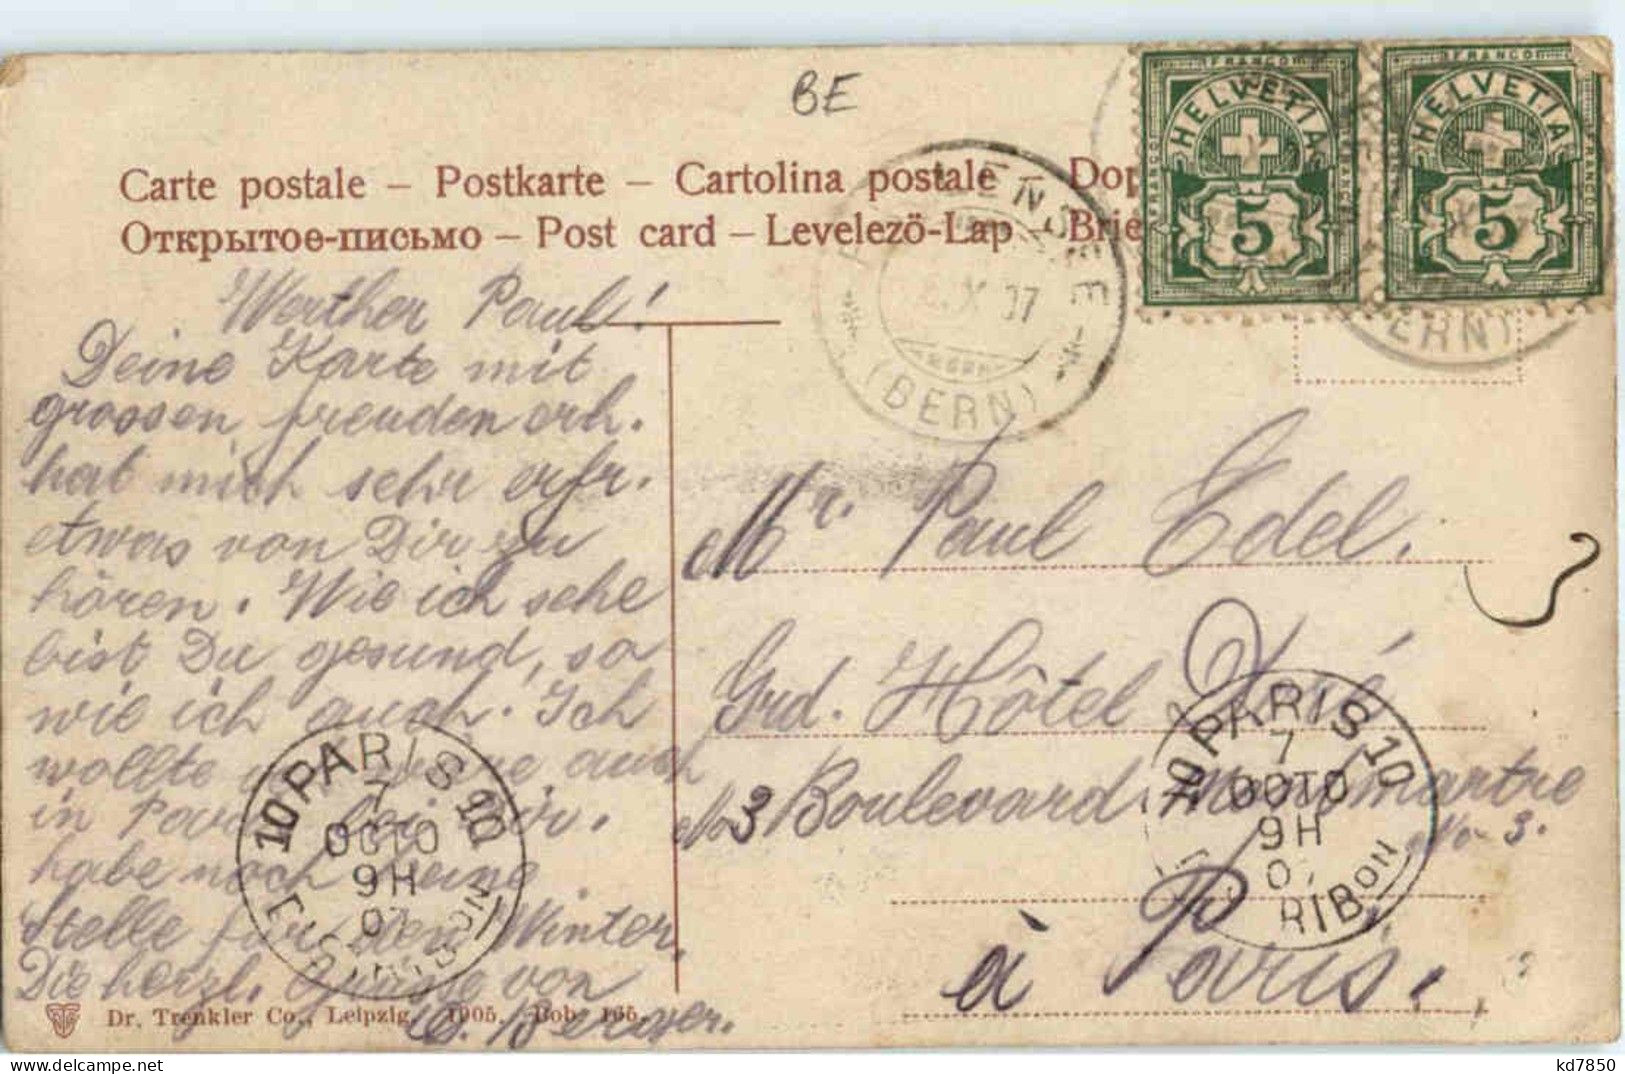 BE
Carte postale – Postkarte – Cartolina postale – Dop
Открытое-письмо – Post card – Levelező-Lap – Brie
FRANCO HELVETIA FRANCO 5
FRANCO HELVETIA FRANCO 5
(BERN)
(BERN)
Werther Paul!
Deine Karte mit
grossen freuden erh.
hat mich sehr erfr.
etwas von Dir zu
hören. Wie ich sehe
bist Du gesund, so
wie ich auch. Ich
wollte wäre auch
in Paris bei Dir.
habe noch keine
Stelle für den Winter.
Die herzl. Grüsse von
Mr. Paul Edel.
Grd. Hôtel Doré
No 3 Boulevard Montmartre
No- 3.
à Paris.
10 PARIS 10
7
OCTO
9H
07
DISTRIBON
10 PARIS 10
7
OCTO
9H
0
RIBON
Dr. Trenkler Co., Leipzig. 1905. Bob. 165.
kd7850